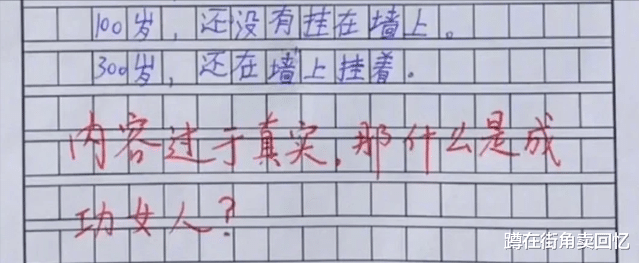 100岁，还没有挂在墙上。
300岁，还在墙上挂着。
内容过于真实，那什么是成
功女人？
蹲在街角卖回忆